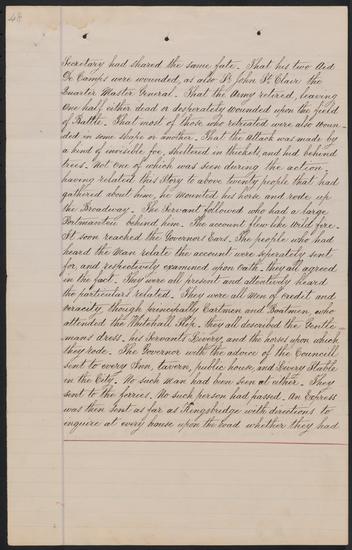 48
Secretary had shared the same fate. That his two Aid
De Camps were wounded, as also Sr. John St. Clair the
Quarter Master General. That the Army retired, leaving
one half either dead or desperately wounded upon the field
of Battle. That most of those who retreated were also woun-
ded in some shape or another. That the attack was made by
a kind of invisible foe, sheltered in thickets, and hid behind
trees. Not one of which was seen during the action.
having related this Story to above twenty people that had
gathered about him, he mounted his horse and rode up
the Broadway. The Servant followed who had a large
Portmanteau behind him. The account flew like Wild fire.
It soon reached the Governors Ears. The people who had
heard the Man relate the account were seperately sent
for, and respectively examined upon Oath. they all agreed
in the fact. They were all present and attentively heard
the particulars related. They were all Men of credit and
veracity, though principally Cartmen and Boatmen, who
attended the Whitehall Slip. they all described the Gentle-
mans dress, his Servants Livery, and the horses upon which
they rode. The Governor with the advice of the Council
sent to every Inn, tavern, public house, and Livery Stable
in the City. No such Man had been seen at either. They
sent to the ferries. No such person had passed. An Express
was then sent as far as Kingsbridge with directions to
enquire at every house upon the road whether they had